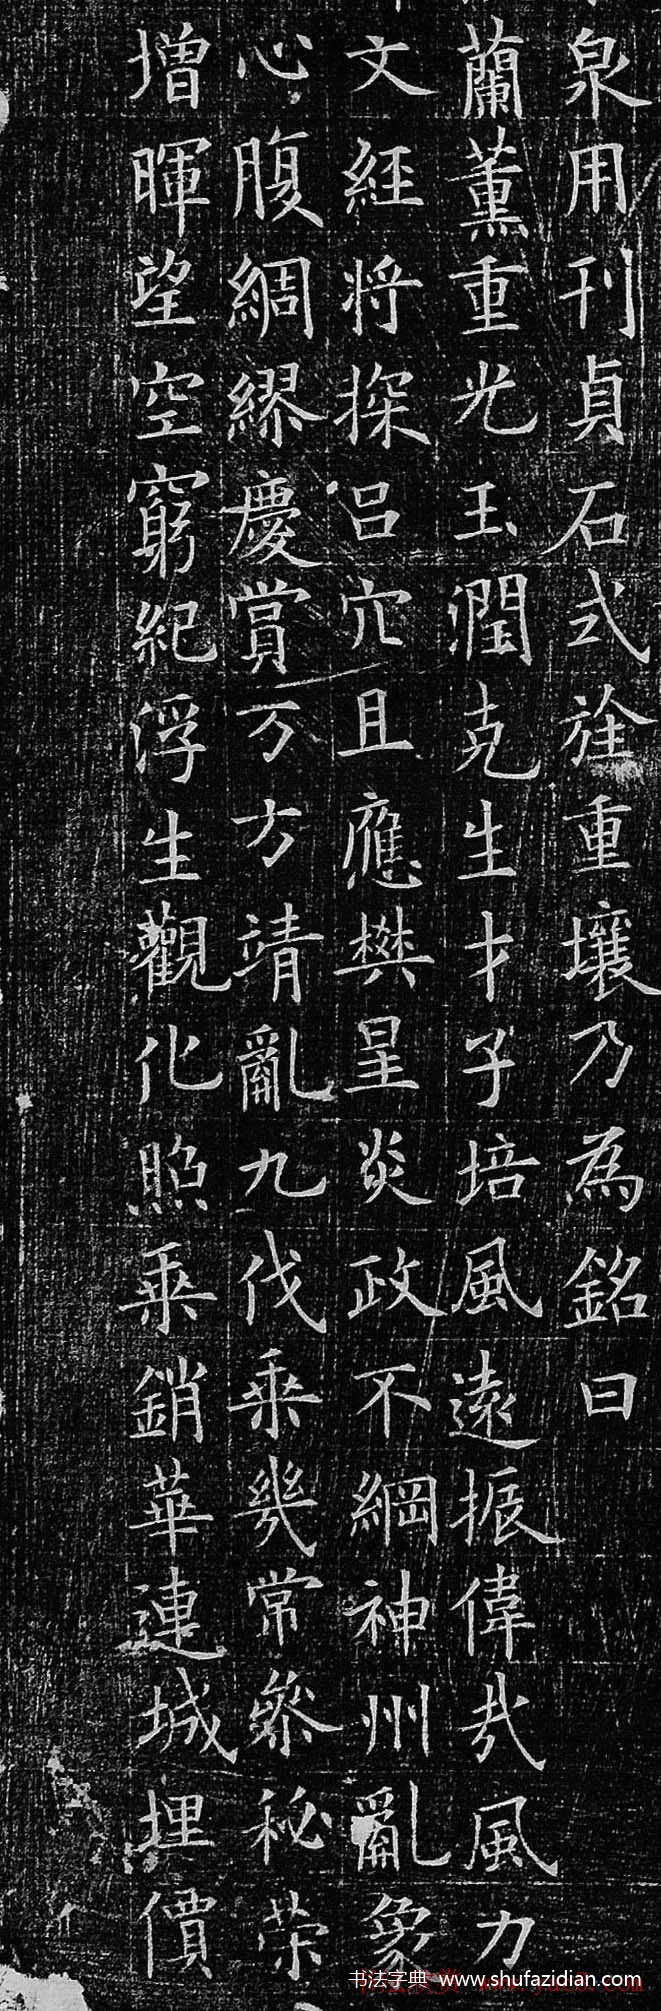 泉用刊貞石式旌重壤乃為銘曰
蘭薰重光玉潤克生才子培風遠振偉哉風力
文經將探呂穴且應樊星炎政不綱神州亂象
心腹綢繆慶賞万方靖亂九伐乘幾常參秘榮
增暉望空窮紀浮生觀化照乘銷華連城埋價
书法字典 www.shufazidian.com